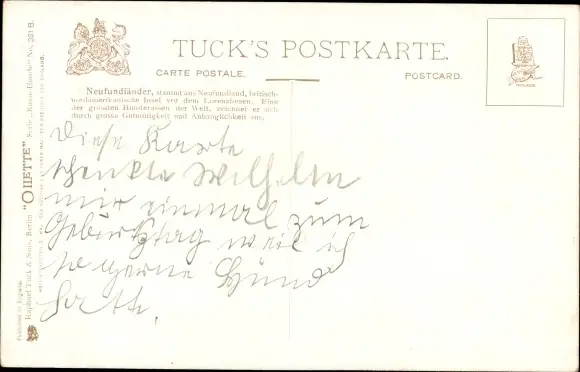 TUCK'S POSTKARTE.
CARTE POSTALE.
POSTCARD.
Neufundländer, stammt aus Neufundland, britisch-
nordamerikanische Insel vor dem Lorenzstrom. Eine
der grössten Hunderassen der Welt, zeichnet er sich
durch grosse Gutmütigkeit und Anhänglichkeit aus.
Diese Karte
schenkte Wilhelm
mir einmal zum
Geburtstag weil ich
so gerne Hund
hatte.
"OILETTE" Serie No. 321 B.
Raphael Tuck & Sons, Berlin